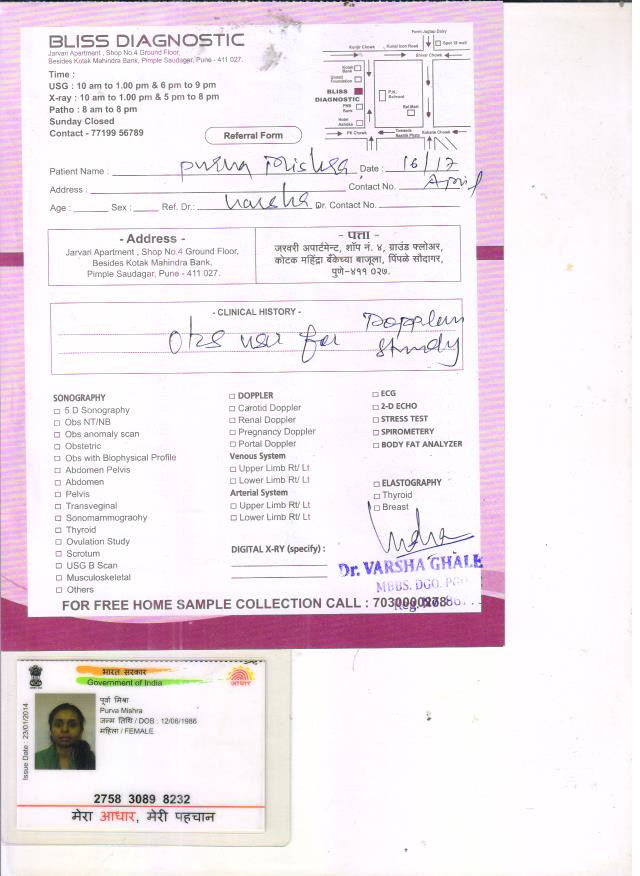 BLISS DIAGNOSTIC
Jarvari Apartment , Shop No.4 Ground Floor,
Besides Kotak Mahindra Bank, Pimple Saudagar, Pune - 411 027.
Time :
USG : 10 am to 1.00 pm & 6 pm to 9 pm
X-ray : 10 am to 1.00 pm & 5 pm to 8 pm
Patho : 8 am to 8 pm
Sunday Closed
Contact - 77199 56789
From Jagtap Dairy
Spot 18 mall
Kunjir Chowk
Kunal Icon Road
Shivar Chowk
Kotak Bank
BLISS DIAGNOSTIC
P.K. School
PNB Bank
Hotel Ashoka
PK Chowk
Towards Nashik Phata
Kokane Chowk
Referral Form
Patient Name : Purva Mishra Date : 16/17 April
Address : Contact No.
Age : Sex : Ref. Dr.: Varsha Dr. Contact No.
- Address -
Jarvari Apartment , Shop No.4 Ground Floor,
Besides Kotak Mahindra Bank,
Pimple Saudagar, Pune - 411 027.
- पत्ता -
जरवरी अपार्टमेन्ट, शॉप नं. ४, ग्राउंड फ्लोअर,
कोटक महिंद्रा बँकेच्या बाजूला, पिंपळे सौदागर,
पुणे-४११ ०२७.
- CLINICAL HISTORY -
Obs usg for Doppler
study
SONOGRAPHY
5 D Sonography
Obs NT/NB
Obs anomaly scan
Obstetric
Obs with Biophysical Profile
Abdomen Pelvis
Abdomen
Pelvis
Transveginal
Sonomammograohy
Thyroid
Ovulation Study
Scrotum
USG B Scan
Musculoskeletal
Others
DOPPLER
Carotid Doppler
Renal Doppler
Pregnancy Doppler
Portal Doppler
Venous System
Upper Limb Rt/ Lt
Lower Limb Rt/ Lt
Arterial System
Upper Limb Rt/ Lt
Lower Limb Rt/ Lt
DIGITAL X-RY (specify) :
ECG
2-D ECHO
STRESS TEST
SPIROMETERY
BODY FAT ANALYZER
ELASTOGRAPHY
Thyroid
Breast
Dr. VARSHA GHALE
MBBS. DGO.
FOR FREE HOME SAMPLE COLLECTION CALL :
भारत सरकार
Government of India
आधार
पूर्वा मिश्रा
Purva Mishra
जन्म तिथि / DOB : 12/06/1986
महिला / FEMALE
Issue Date : 23/01/2014
2758 3089 8232
मेरा आधार, मेरी पहचान